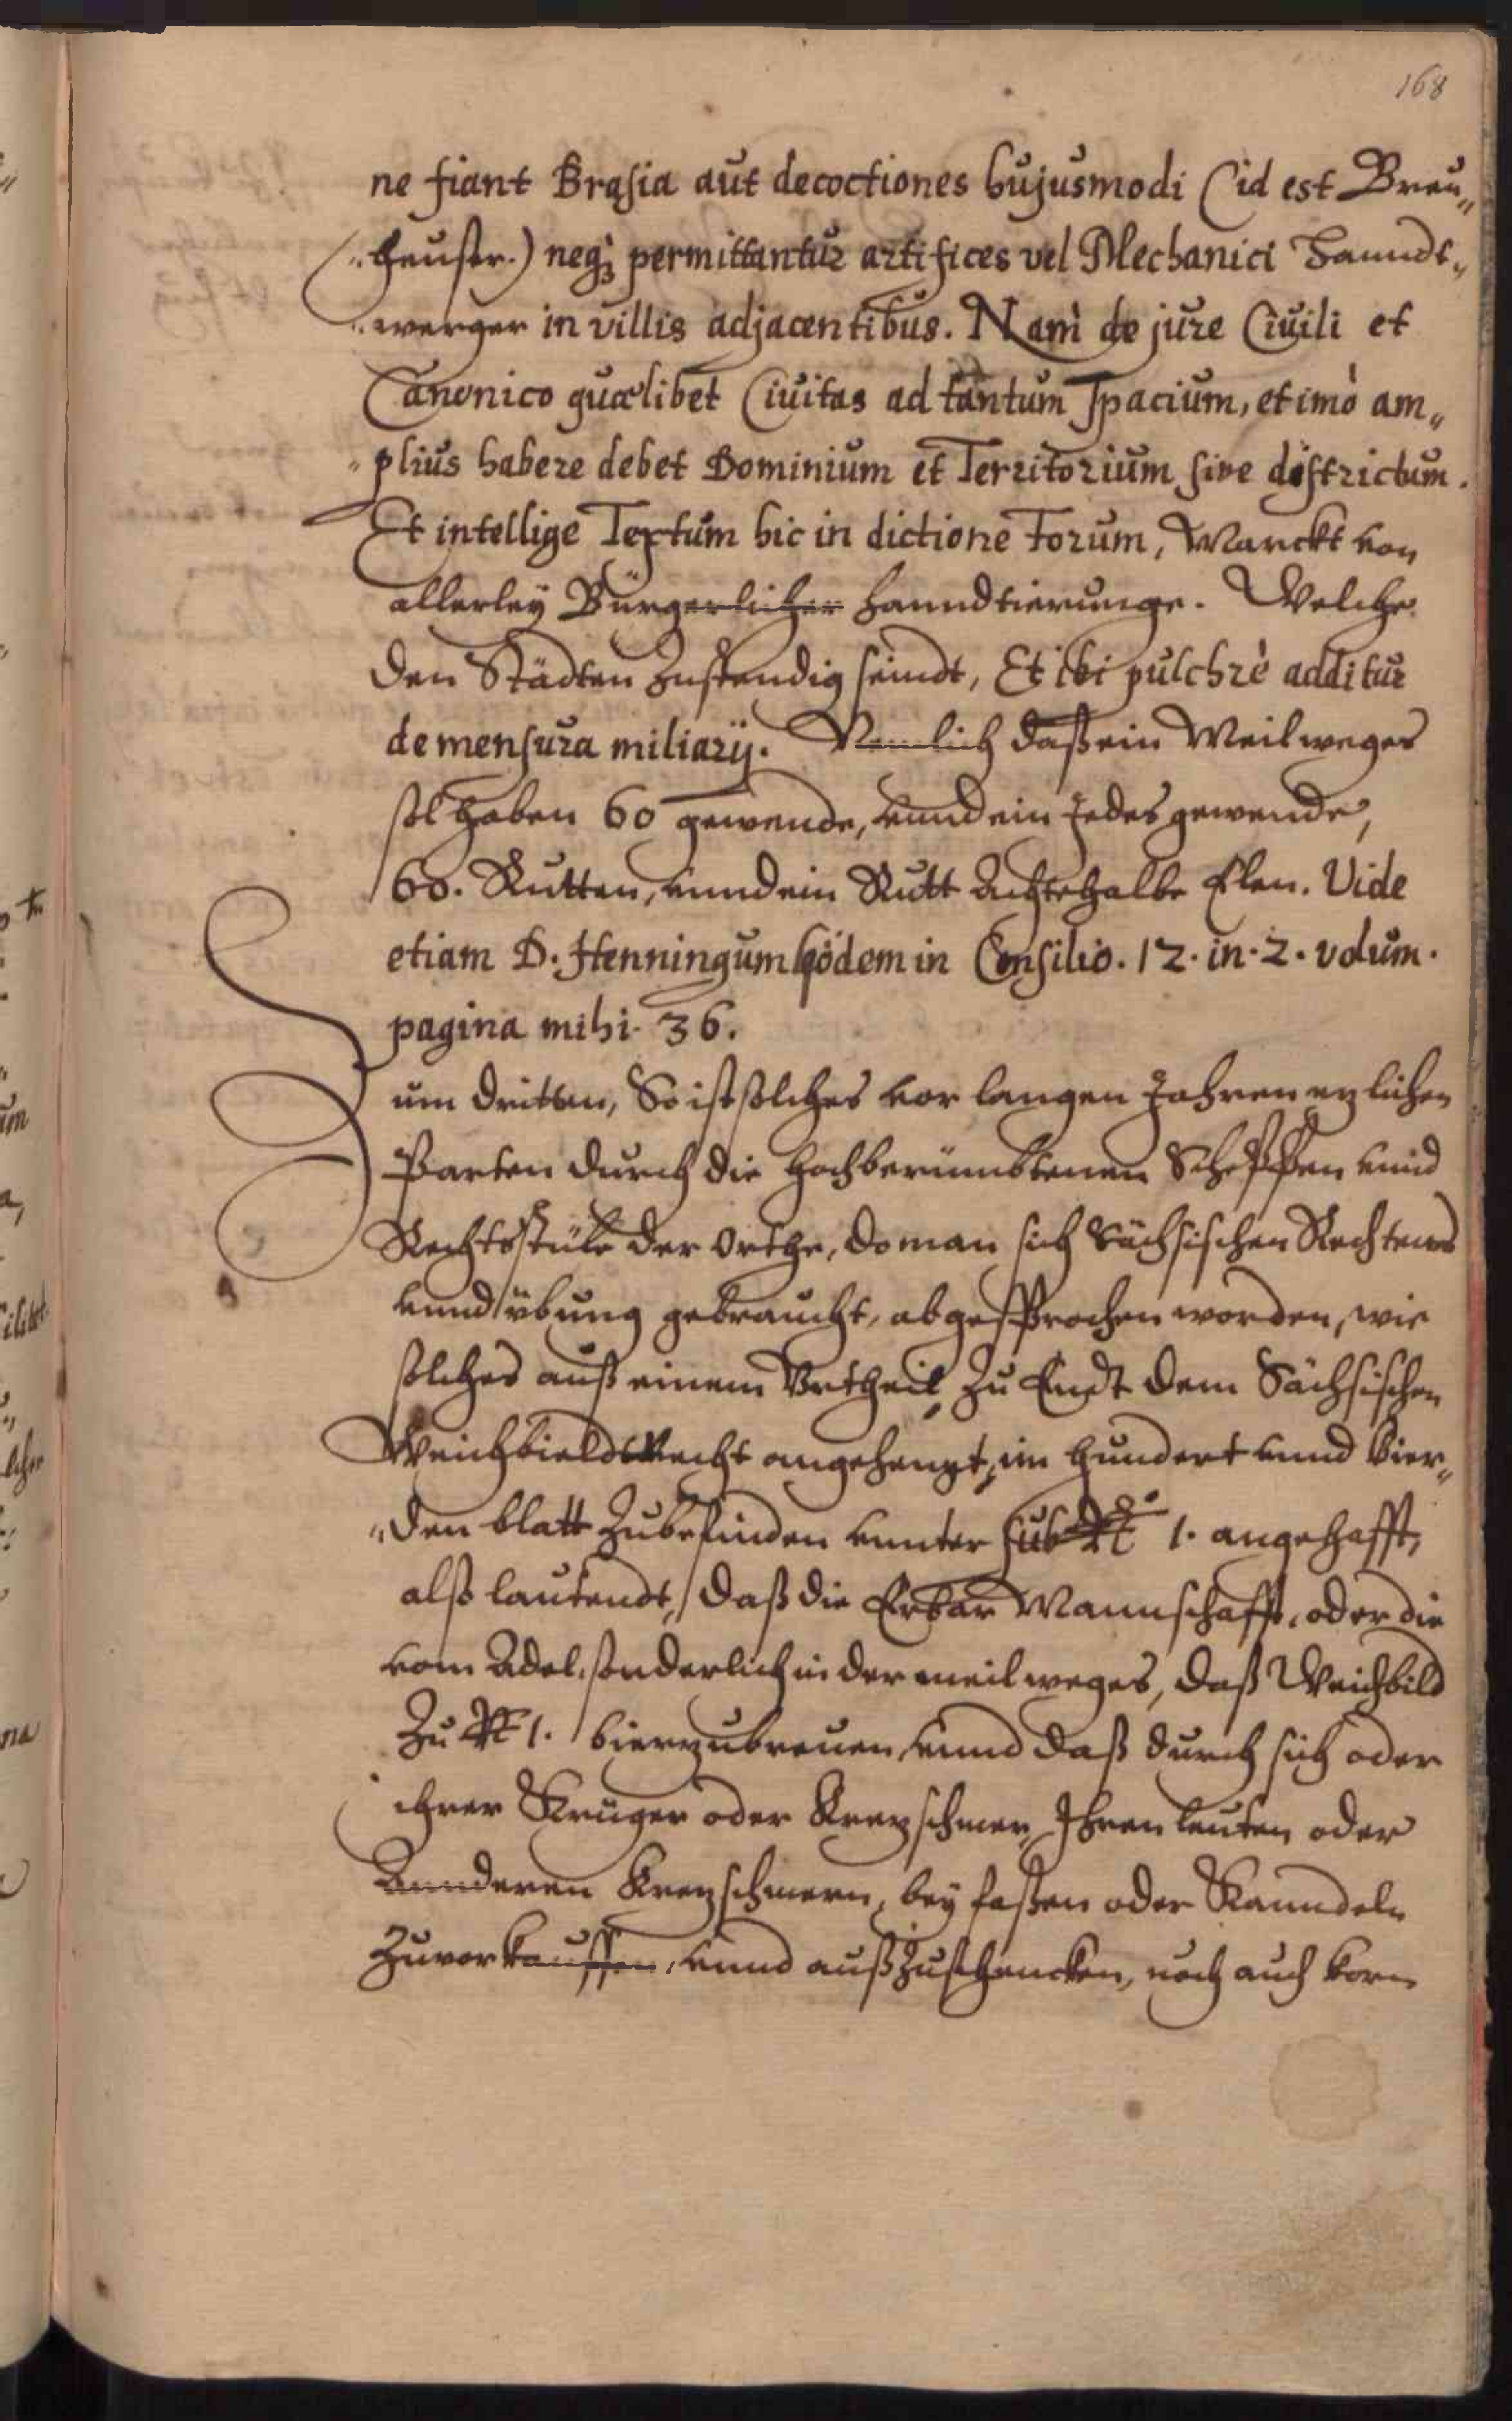 168
ne fiant Brasia aut decoctiones hujusmodi (id est Breu„
„heuser.) neqꝫ permittantur artifices vel Mechanici Handt„
„werger in villis adjacentibus. Nam de jure Ciuili et
Canonico quælibet Ciuitas ad tantum spacium, et imò am„
„plius habere debet Dominium et Territorium sive districtum.
Et intellige Textum hic in dictione Forum, Marckt von
allerley Bürgerlicher Hanndtierunge. Welche
den Städten zustendig seindt, Et ibi pulchrè additur
de mensura miliarij. Nemlich daß ein Meil weges
sol haben 60 gewende, vnnd ein Jedes gewende,
60. Rutten, vnnd ein Rutt Achtehalbe Elen. Vide
etiam D. Henningum Gödem in Consilio. 12. in. 2. volum.
pagina mihi. 36.
Zum dritten, So ist solches vor langen Jahren ezlichen
Parten durch die hochberümbtenen Scheppen vnnd
Rechtsstüle der Orthe, do man sich Sächsischen Rechtens
vnnd übung gebraucht, abgesprochen worden, wie
solches auß einem Vrtheil zu Endt dem Sächsischen
Weichbieldt Recht angehengt, im hundert vnnd vier„
„den blatt zubefinden vnnter sub 1. angehafft,
also lautendt, daß die Erbar Mannschafft, oder die
vom Adel, sonderlich in der meil weges, daß Weichbild
Zu 1. bier zubreuen vnnd daß durch sich oder
ihrer Krüger oder Krezschmer, Ihren leuten oder
Annderen Krezschmern, bey faßen oder Kanndeln
Zuvorkauffen, vnnd auß Zuschencken, noch auch korn